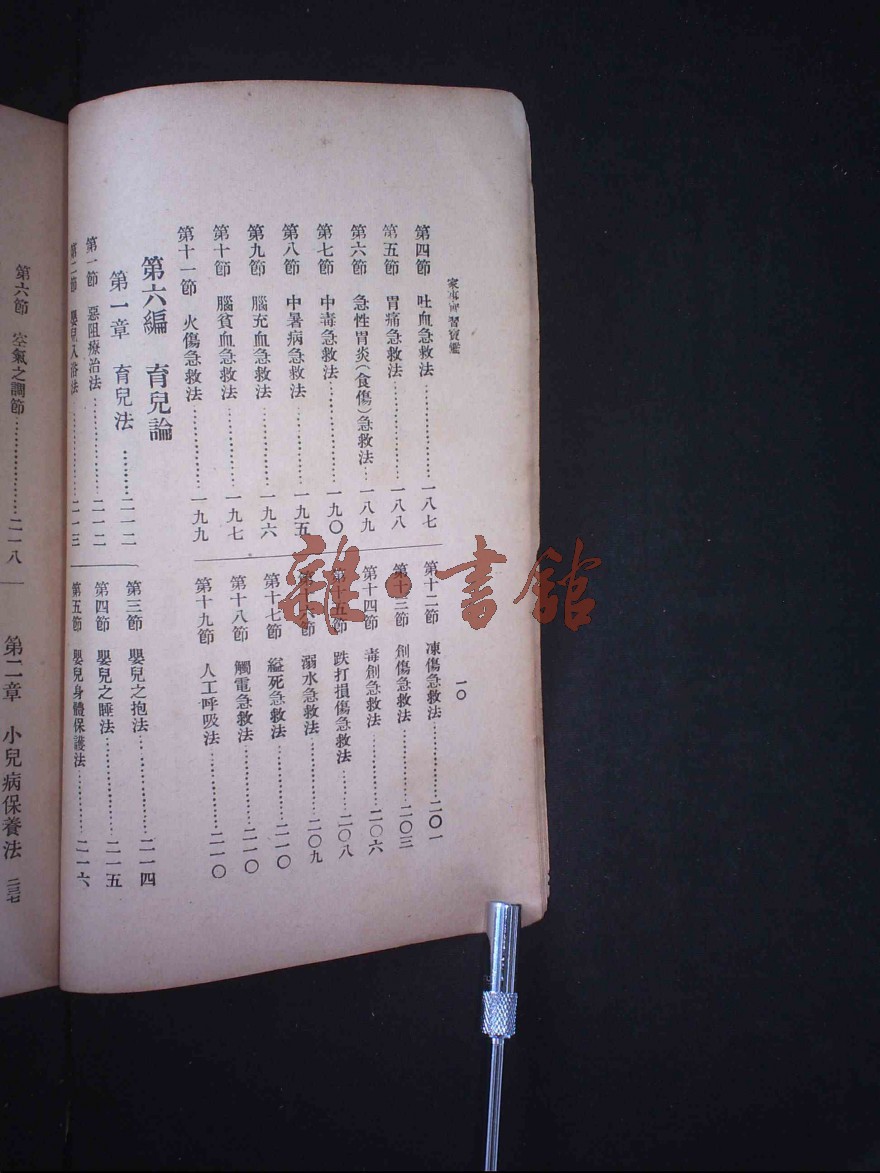 習寶鑑
一〇
第四節 吐血急救法……………一八七
第五節 胃痛急救法……………一八八
第六節 急性胃炎(食傷)急救法…一八九
第七節 中毒急救法……………一九〇
第八節 中暑病急救法…………一九五
第九節 腦充血急救法…………一九六
第十節 腦貧血急救法…………一九七
第十一節 火傷急救法…………一九九
第十二節 凍傷急救法…………二〇一
第十三節 創傷急救法…………二〇三
第十四節 毒創急救法…………二〇六
第十五節 跌打損傷急救法……二〇八
第十六節 溺水急救法…………二〇九
第十七節 縊死急救法…………二一〇
第十八節 觸電急救法…………二一〇
第十九節 人工呼吸法…………二一〇
第六編 育兒論
第一章 育兒法…………二一二
第一節 惡阻療治法……………二一二
第二節 嬰兒入浴法……………二一三
第三節 嬰兒之抱法……………二一四
第四節 嬰兒之睡法……………二一五
第五節 嬰兒身體保護法………二一六
第六節 空氣之調節……………二一八
第二章 小兒病保養法 二三七
雜·書館